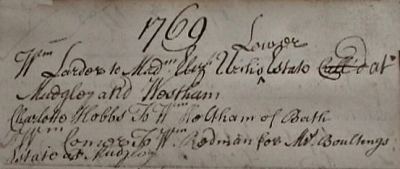 1769
Lower
Wm Larder to Madm Eliz: Estate Call'd at
Mudgley and Westham
Charlotte Hobbs To Wm Holtham of Bath
Wm Comer To Wm Redman for Mr Boultings
Estate at Mudgley